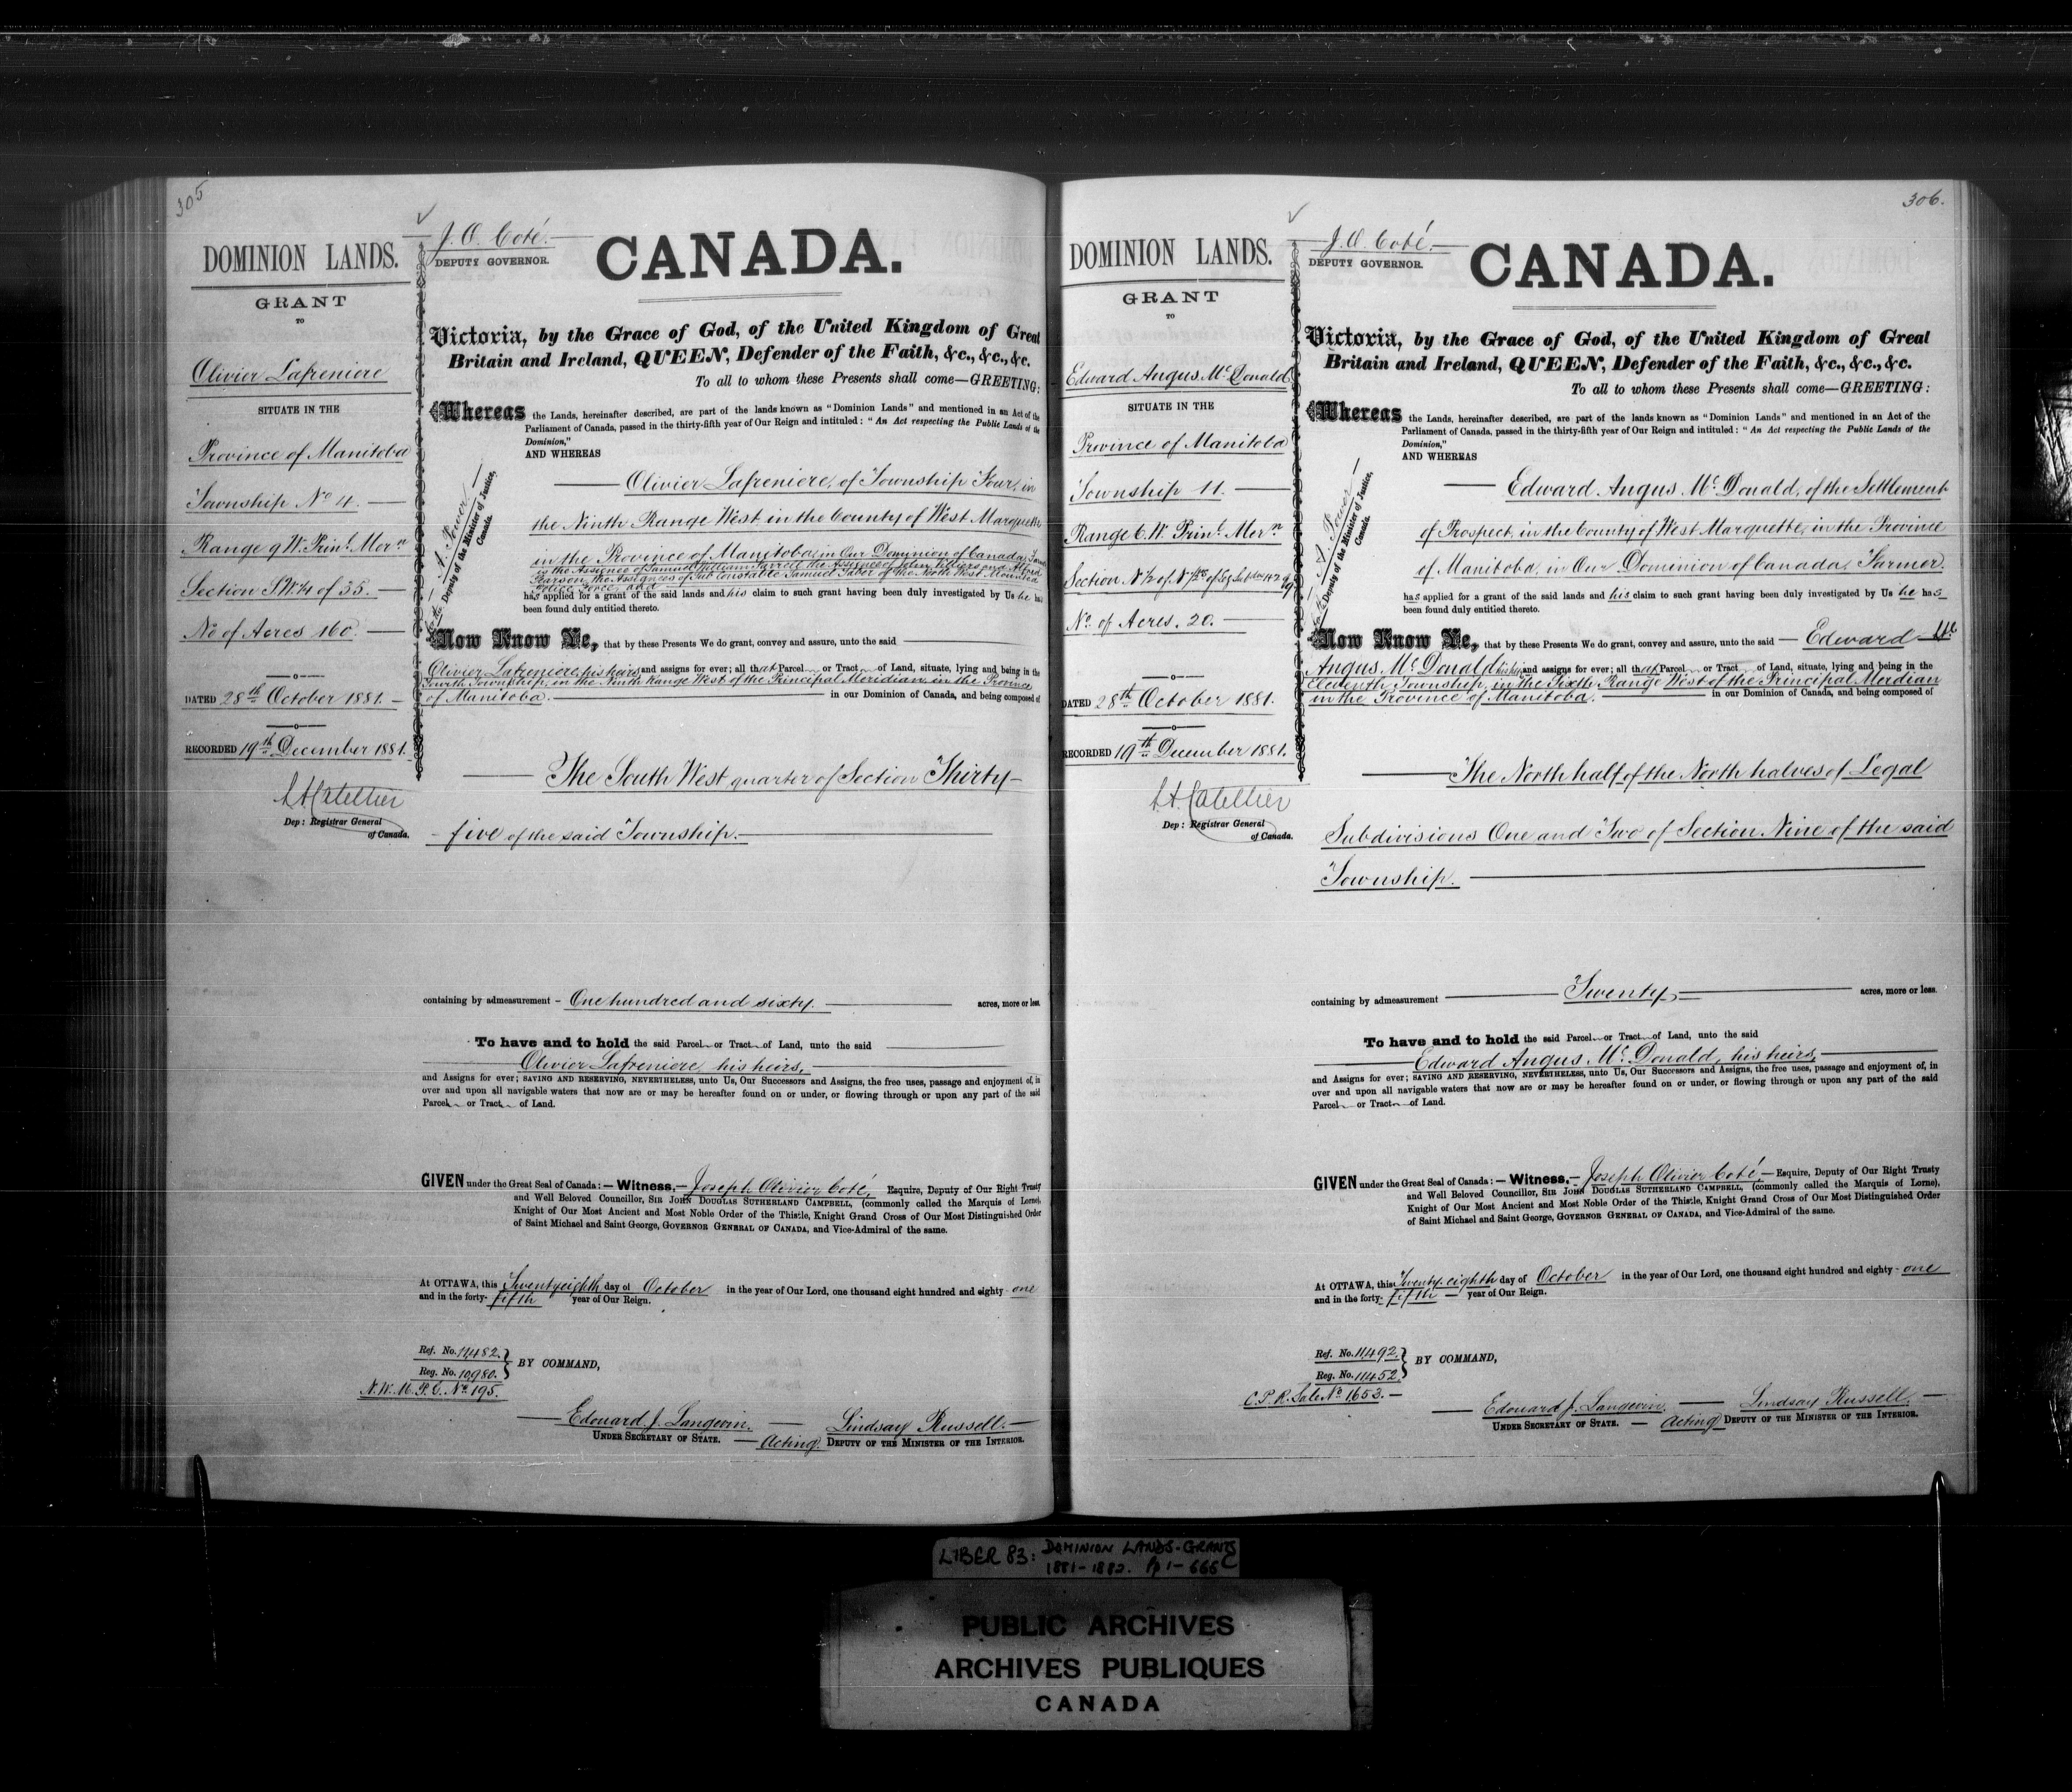 305
DOMINION LANDS.
GRANT
TO
Olivier Lafreniere
SITUATE IN THE
Province of Manitoba
Township No 4.
Range 9 W. Prinl. Mern
Section S.W. 1/4 of 35.
No of Acres 160.
DATED 28th October 1881.
RECORDED 19th December 1881.
L A Catellier
Dep: Registrar General
of Canada.
J. O. Coté.
DEPUTY GOVERNOR.
CANADA.
A. Power
Deputy of the Minister of Justice,
Canada.
Victoria, by the Grace of God, of the United Kingdom of Great
Britain and Ireland, QUEEN, Defender of the Faith, &c., &c., &c.
To all to whom these Presents shall come—GREETING:
Whereas the Lands, hereinafter described, are part of the lands known as "Dominion Lands" and mentioned in an Act of the
Parliament of Canada, passed in the thirty-fifth year of Our Reign and intituled: "An Act respecting the Public Lands of the
Dominion,"
AND WHEREAS
Olivier Lafreniere, of Township Four, in
the Ninth Range West in the County of West Marquette
in the Province of Manitoba, in Our Dominion of Canada,
is the Assignee of Samuel William Farrell the Assignee of John Villiers and Alfred
Pearson, the Assignees of Sub Constable Samuel Taber of the North West Mounted
Police Force, and
has applied for a grant of the said lands and his claim to such grant having been duly investigated by Us he has
been found duly entitled thereto.
Now Know Ye, that by these Presents We do grant, convey and assure, unto the said
Olivier Lafreniere, his heirs, and assigns for ever; all that Parcel or Tract of Land, situate, lying and being in the
Fourth Township, in the Ninth Range West of the Principal Meridian, in the Province
of Manitoba. in our Dominion of Canada, and being composed of
The South West quarter of Section Thirty-
-five of the said Township.
containing by admeasurement - One hundred and sixty. acres, more or less.
To have and to hold the said Parcel or Tract of Land, unto the said
Olivier Lafreniere, his heirs,
and Assigns for ever; SAVING AND RESERVING, NEVERTHELESS, unto Us, Our Successors and Assigns, the free uses, passage and enjoyment of, in
over and upon all navigable waters that now are or may be hereafter found on or under, or flowing through or upon any part of the said
Parcel or Tract of Land.
GIVEN under the Great Seal of Canada:—Witness,— Joseph Olivier Coté, Esquire, Deputy of Our Right Trusty
and Well Beloved Councillor, SIR JOHN DOUGLAS SUTHERLAND CAMPBELL, (commonly called the Marquis of Lorne),
Knight of Our Most Ancient and Most Noble Order of the Thistle, Knight Grand Cross of Our Most Distinguished Order
of Saint Michael and Saint George, GOVERNOR GENERAL OF CANADA, and Vice-Admiral of the same.
At OTTAWA, this Twenty eighth day of October in the year of Our Lord, one thousand eight hundred and eighty-one
and in the forty-fifth year of Our Reign.
Ref. No. 11,482.
Reg. No. 10,980.
BY COMMAND,
N. W. M. P. C. No. 195.
Edouard J. Langevin.
UNDER SECRETARY OF STATE.
Lindsay Russell.
Acting DEPUTY OF THE MINISTER OF THE INTERIOR.
306.
DOMINION LANDS.
GRANT
TO
Edward Angus Mc Donald
SITUATE IN THE
Province of Manitoba
Township 11.
Range 6. W. Prinl. Mern
Section N 1/2 of N
No. of Acres. 20.
DATED 28th October 1881.
RECORDED 19th December 1881.
L A Catellier
Dep: Registrar General
of Canada.
J. O. Coté.
DEPUTY GOVERNOR.
CANADA.
A. Power
Deputy of the Minister of Justice,
Canada.
Victoria, by the Grace of God, of the United Kingdom of Great
Britain and Ireland, QUEEN, Defender of the Faith, &c., &c., &c.
To all to whom these Presents shall come—GREETING:
Whereas the Lands, hereinafter described, are part of the lands known as "Dominion Lands" and mentioned in an Act of the
Parliament of Canada, passed in the thirty-fifth year of Our Reign and intituled: "An Act respecting the Public Lands of the
Dominion,"
AND WHEREAS
Edward Angus Mc Donald, of the Settlement
of Prospect, in the County of West Marquette, in the Province
of Manitoba, in Our Dominion of Canada, Farmer.
has applied for a grant of the said lands and his claim to such grant having been duly investigated by Us he has
been found duly entitled thereto.
Now Know Ye, that by these Presents We do grant, convey and assure, unto the said — Edward
Angus Mc Donald, his heirs, and assigns for ever; all that Parcel or Tract of Land, situate, lying and being in the
Eleventh Township, in the Sixth Range West of the Principal Meridian
in the Province of Manitoba. in our Dominion of Canada, and being composed of
The North half of the North halves of Legal
Subdivisions One and Two of Section Nine of the said
Township.
containing by admeasurement Twenty acres, more or less.
To have and to hold the said Parcel or Tract of Land, unto the said
Edward Angus Mc Donald, his heirs,
and Assigns for ever; SAVING AND RESERVING, NEVERTHELESS, unto Us, Our Successors and Assigns, the free uses, passage and enjoyment of, in
over and upon all navigable waters that now are or may be hereafter found on or under, or flowing through or upon any part of the said
Parcel or Tract of Land.
GIVEN under the Great Seal of Canada:—Witness,— Joseph Olivier Coté,— Esquire, Deputy of Our Right Trusty
and Well Beloved Councillor, SIR JOHN DOUGLAS SUTHERLAND CAMPBELL, (commonly called the Marquis of Lorne),
Knight of Our Most Ancient and Most Noble Order of the Thistle, Knight Grand Cross of Our Most Distinguished Order
of Saint Michael and Saint George, GOVERNOR GENERAL OF CANADA, and Vice-Admiral of the same.
At OTTAWA, this Twenty-eighth day of October in the year of Our Lord, one thousand eight hundred and eighty-one
and in the forty-fifth year of Our Reign.
Ref. No. 11,492.
Reg. No. 11,452.
BY COMMAND,
C. P. R. Sale No. 1653.
Edouard J. Langevin.
UNDER SECRETARY OF STATE.
Lindsay Russell.
Acting DEPUTY OF THE MINISTER OF THE INTERIOR.
LIBER 83: DOMINION LANDS-GRANTS
1881-1882. Pp 1-665
PUBLIC ARCHIVES
ARCHIVES PUBLIQUES
CANADA